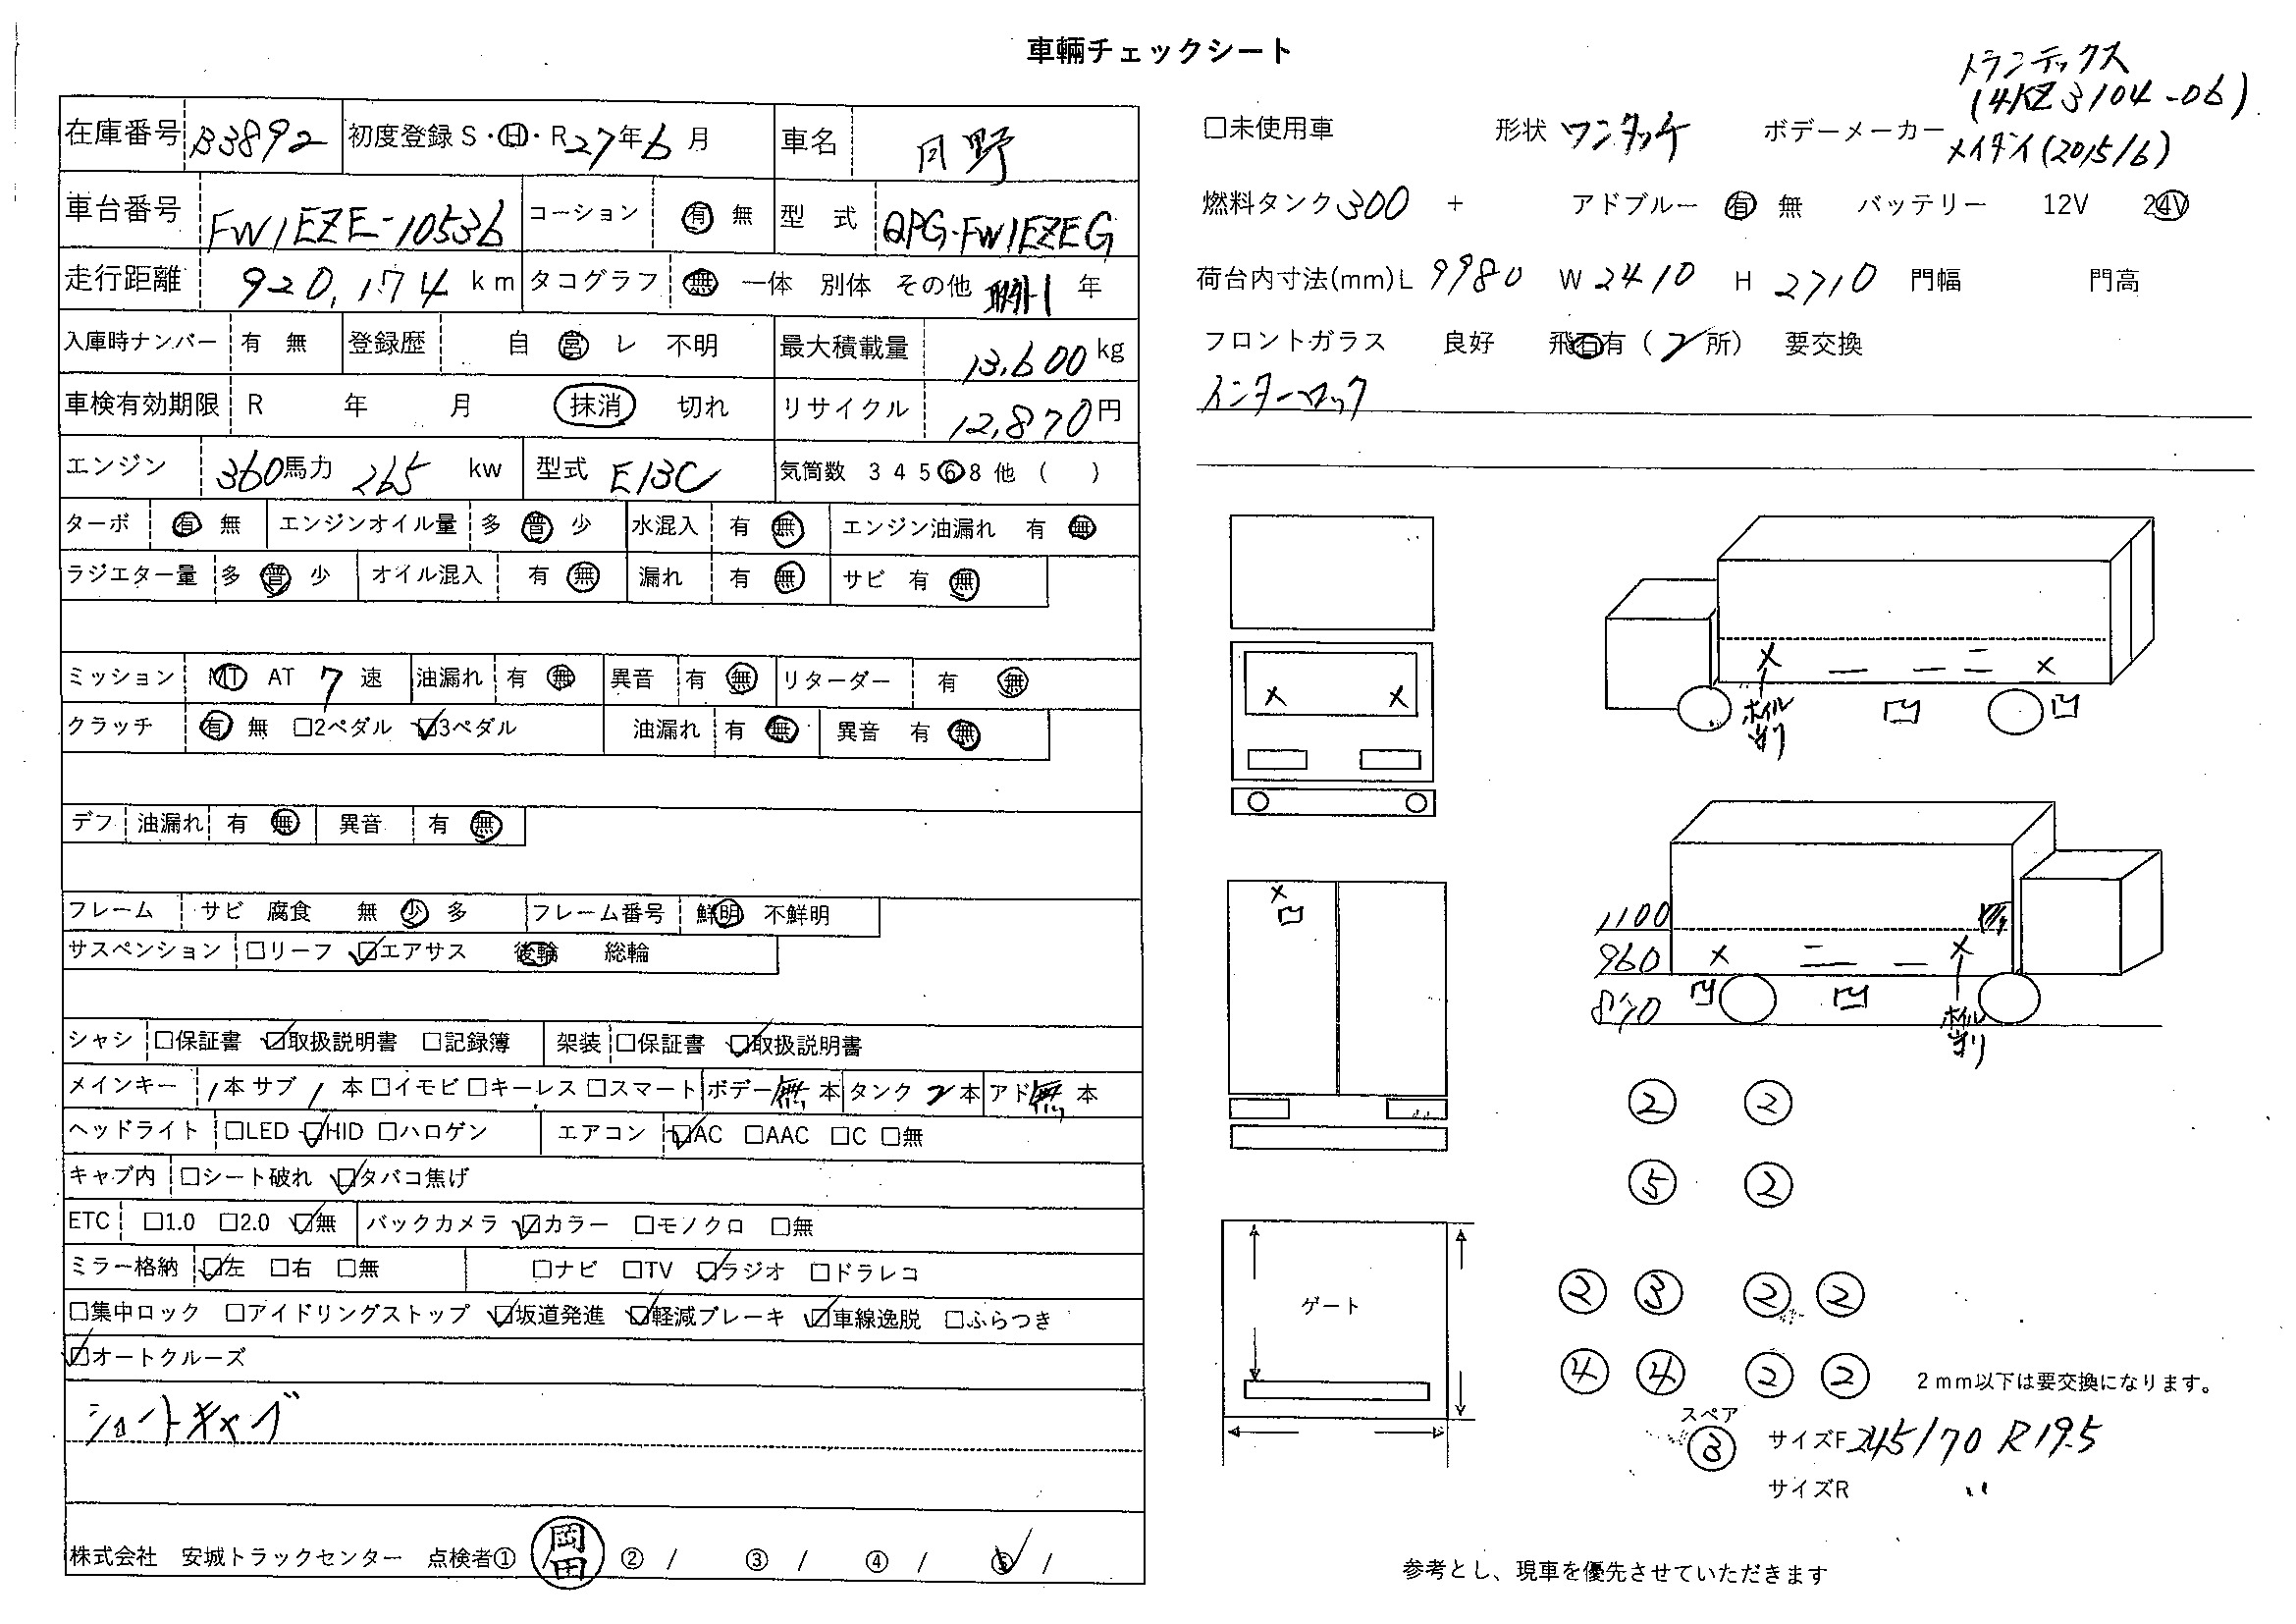 車輛チェックシート
トランテックス
(4KZ3104-06)
在庫番号 B3892 初度登録 S・H・R 27年6月 車名 日野
□未使用車 形状 ワンタッチ ボデーメーカー メイダイ(2015/6)
車台番号 FW1EZE-10536 コーション 有 無 型 式 QPG-FW1EZEG
燃料タンク 300 + アドブルー 有 無 バッテリー 12V 24V
走行距離 920,174 km タコグラフ 無 一体 別体 その他 年
荷台内寸法(mm)L 9980 W 2410 H 2710 門幅 門高
入庫時ナンバー 有 無 登録歴 自 営 レ 不明 最大積載量 13,600 kg
フロントガラス 良好 飛石有(2所) 要交換
車検有効期限 R 年 月 抹消 切れ リサイクル 12,870円
インターロック
エンジン 360馬力 265 kw 型式 E13C 気筒数 3 4 5 6 8 他 ( )
ターボ 有 無 エンジンオイル量 多 普 少 水混入 有 無 エンジン油漏れ 有 無
ラジエター量 多 普 少 オイル混入 有 無 漏れ 有 無 サビ 有 無
ミッション MT AT 7 速 油漏れ 有 無 異音 有 無 リターダー 有 無
クラッチ 有 無 □2ペダル ☑3ペダル 油漏れ 有 無 異音 有 無
デフ 油漏れ 有 無 異音 有 無
フレーム サビ 腐食 無 少 多 フレーム番号 鮮明 不鮮明
サスペンション □リーフ ☑エアサス 後輪 総輪
シャシ □保証書 ☑取扱説明書 □記録簿 架装 □保証書 ☑取扱説明書
メインキー 1本 サブ 1 本 □イモビ □キーレス □スマート ボデー 無 本 タンク 2 本 アド 無 本
ヘッドライト □LED ☑HID □ハロゲン エアコン ☑AC □AAC □C □無
キャブ内 □シート破れ ☑タバコ焦げ
ETC □1.0 □2.0 ☑無 バックカメラ ☑カラー □モノクロ □無
ミラー格納 ☑左 □右 □無 □ナビ □TV ☑ラジオ □ドラレコ
□集中ロック □アイドリングストップ ☑坂道発進 ☑軽減ブレーキ ☑車線逸脱 □ふらつき
☑オートクルーズ
ショートキャブ
株式会社 安城トラックセンター 点検者① 岡田 ② / ③ / ④ / ⑤ /
ホイル
1100
960
ホイル
② ②
⑤ ②
② ③ ② ②
④ ④ ② ②
ゲート
2mm以下は要交換になります。
スペア
③
サイズF 245/70 R19.5
サイズR 〃
参考とし、現車を優先させていただきます